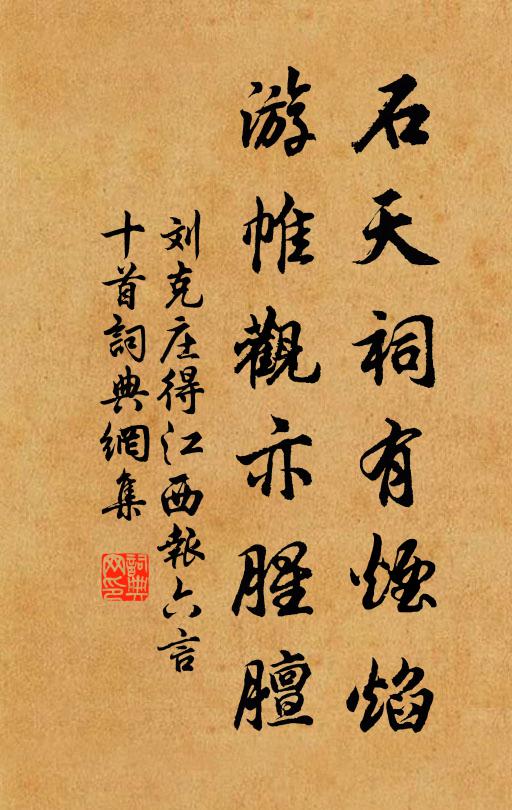 石天祠有煙焰
游帷觀亦腥膻
刘克庄得江西報六言
十首詞典網集
詞典
网印